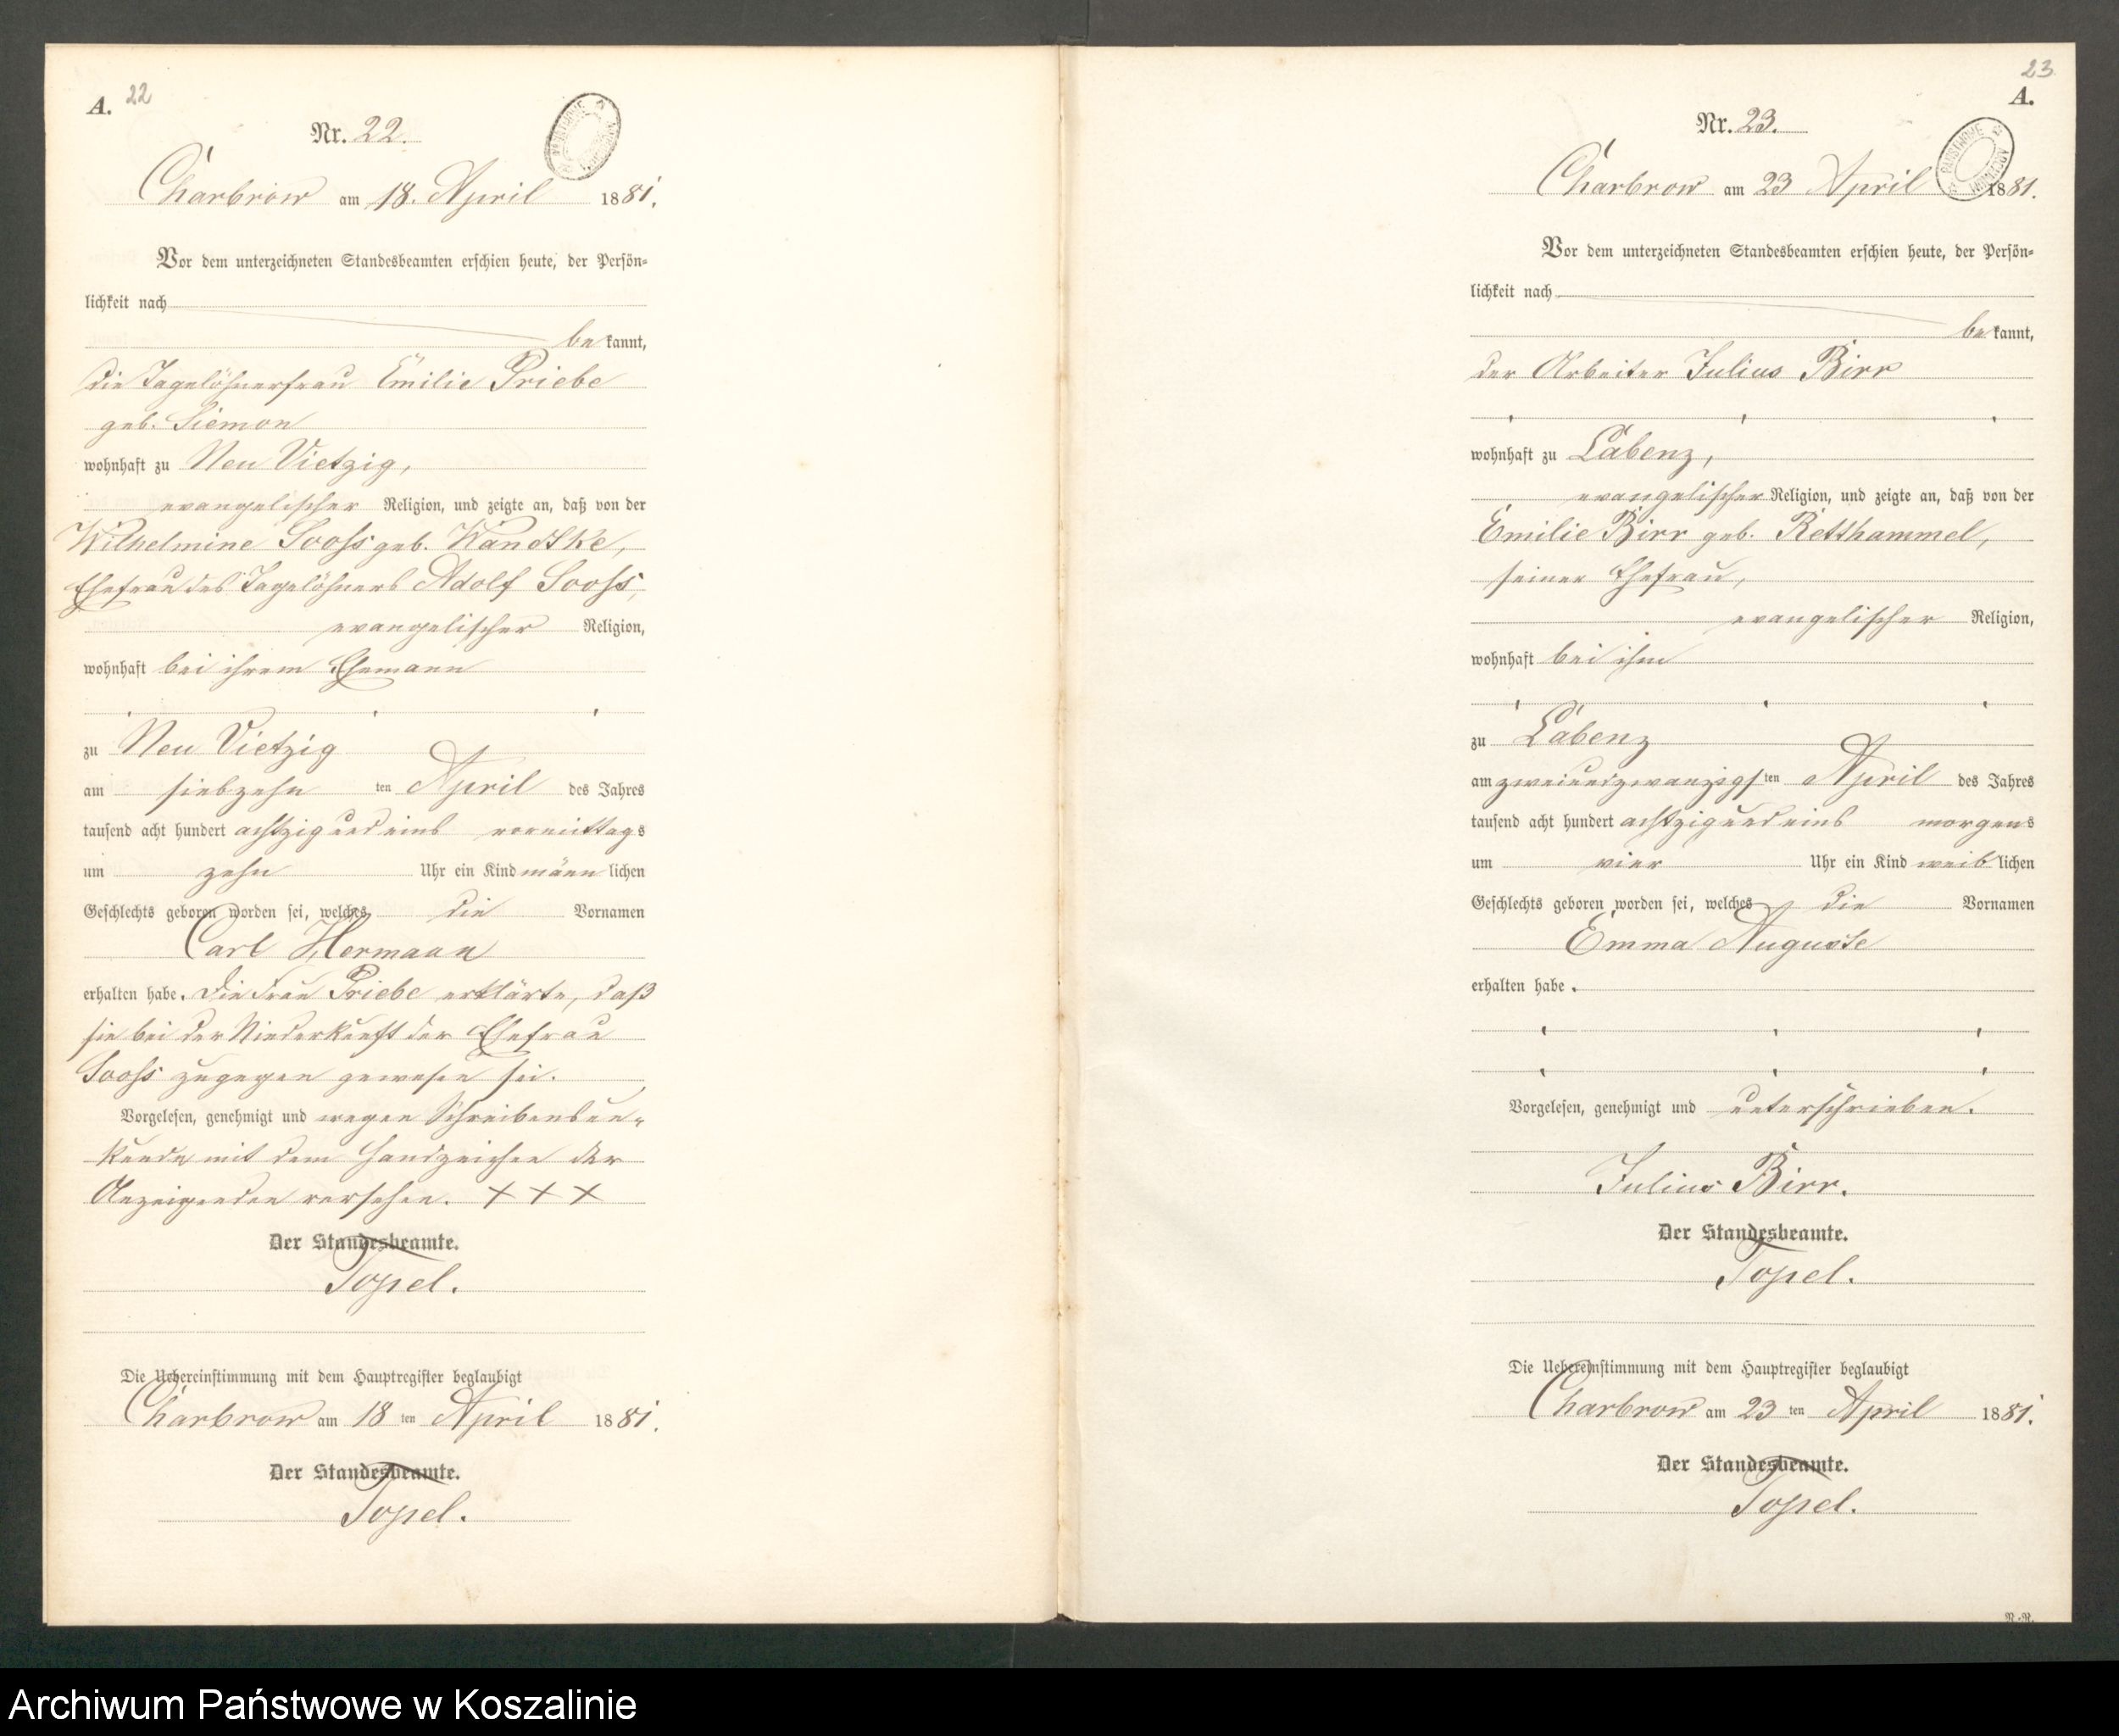 A. 22
Nr. 22.
Charbrow am 18. April 1881.
Vor dem unterzeichneten Standesbeamten erschien heute, der Persön-
lichkeit nach
bekannt,
die Tagelöhnerfrau Emilie Priebe
geb. Siemon
wohnhaft zu Neu Vietzig,
evangelischer Religion, und zeigte an, daß von der
Wilhelmine Sooss geb. Wandtke,
Ehefrau des Tagelöhners Adolf Sooss,
evangelischer Religion,
wohnhaft bei ihrem Ehemann
zu Neu Vietzig
am siebzehn ten April des Jahres
tausend acht hundert achtzig und eins vormittags
um zehn Uhr ein Kind männlichen
Geschlechts geboren worden sei, welches die Vornamen
Carl Hermann
erhalten habe. Die Frau Priebe erklärte, daß
sie bei der Niederkunft der Ehefrau
Sooss zugegen gewesen sei.
Vorgelesen, genehmigt und wegen Schreibensun-
kunde mit dem Handzeichen der
Anzeigenden versehen. + + +
Der Standesbeamte.
Topel.
Die Uebereinstimmung mit dem Hauptregister beglaubigt
Charbrow am 18 ten April 1881.
Der Standesbeamte.
Topel.
23
A.
Nr. 23.
Charbrow am 23 April 1881.
Vor dem unterzeichneten Standesbeamten erschien heute, der Persön-
lichkeit nach
bekannt,
der Arbeiter Julius Birr
wohnhaft zu Labenz,
evangelischer Religion, und zeigte an, daß von der
Emilie Birr geb. Retthammel,
seiner Ehefrau,
evangelischer Religion,
wohnhaft bei ihm
zu Labenz
am zweiundzwanzigsten April des Jahres
tausend acht hundert achtzig und eins morgens
um vier Uhr ein Kind weiblichen
Geschlechts geboren worden sei, welches die Vornamen
Emma Auguste
erhalten habe.
Vorgelesen, genehmigt und unterschrieben.
Julius Birr.
Der Standesbeamte.
Topel.
Die Uebereinstimmung mit dem Hauptregister beglaubigt
Charbrow am 23 ten April 1881.
Der Standesbeamte.
Topel.
Archiwum Państwowe w Koszalinie